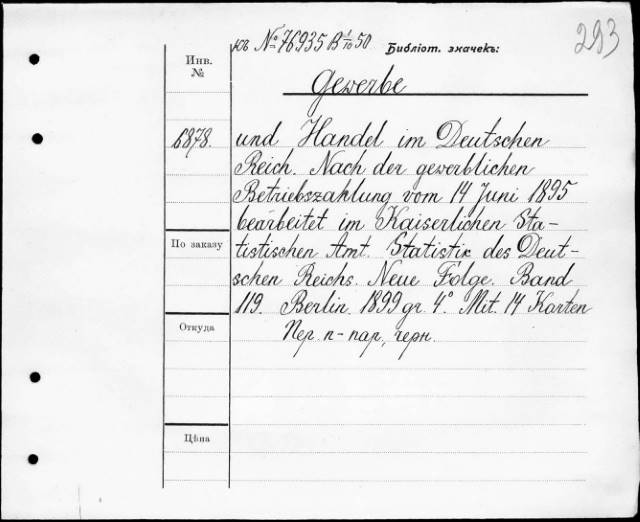 къ № 76935 В 3/10 50 Библіот. значекъ: 293
Инв. №
Gewerbe
6878. und Handel im Deutschen
Reich. Nach der gewerblichen
Betriebszahlung vom 14 Juni 1895
bearbeitet im Kaiserlichen Sta-
По заказу tistischen Amt. Statistik des Deut-
schen Reichs. Neue Folge. Band
119. Berlin. 1899 gr. 4°. Mit. 14 Karten
Откуда Пер. п-пар., черн.
Цѣна